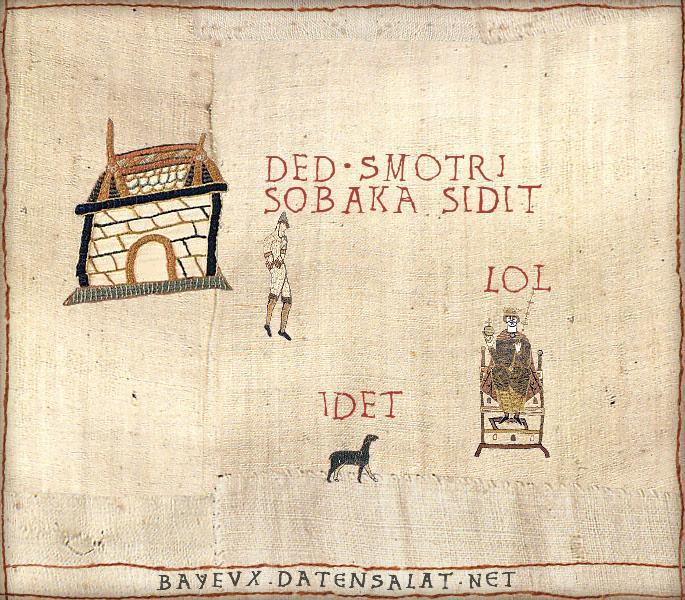 DED·SMOTRI
SOBAKA SIDIT
LOL
IDET
BAYEVX.DATENSALAT.NET